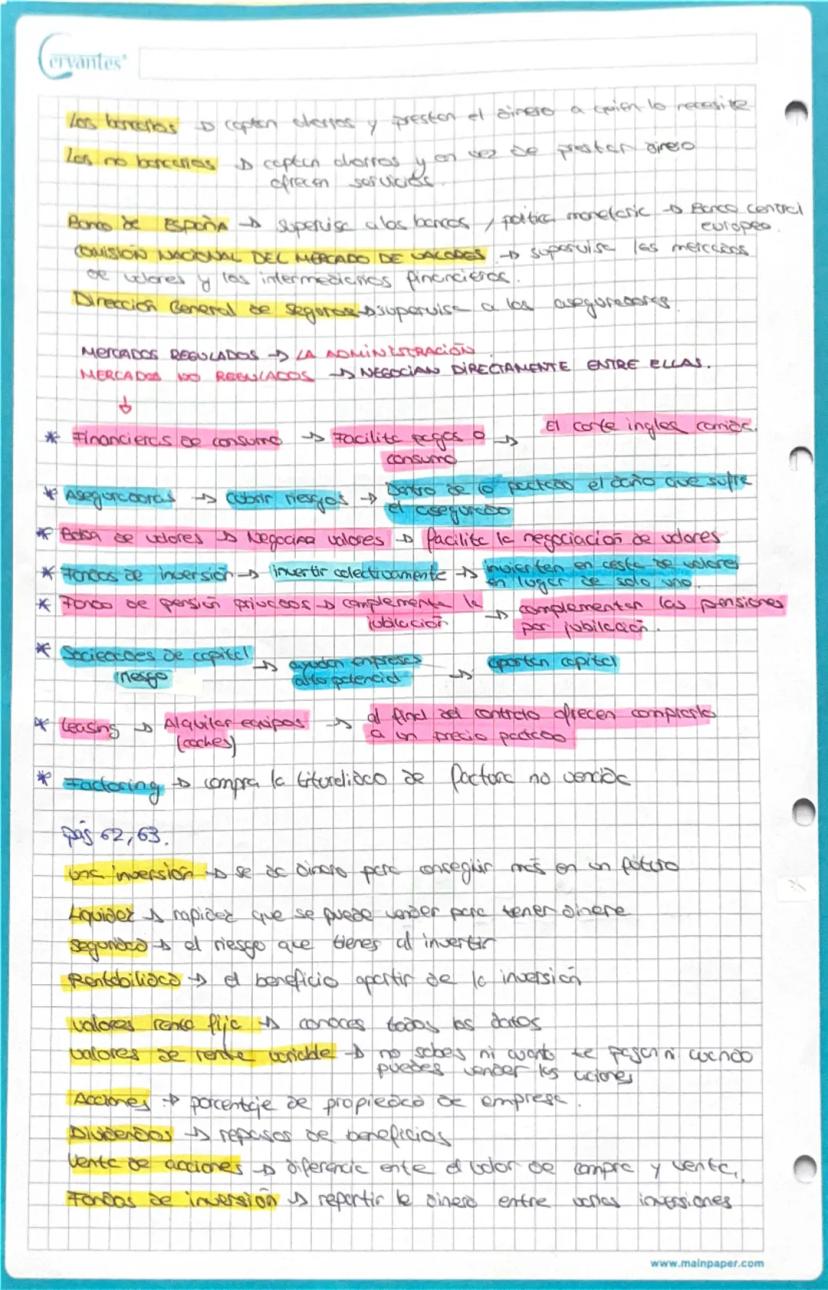 Cervantes
Los bancarios → captan ahorros y prestan el dinero a quien lo necesite
Los no bancarios → captan ahorros y en vez de prestar dinero
ofrecen servicios.
Banco de España → supervisa a los bancos / política monetaria → Banco central
europeo.
COMISIÓN NACIONAL DEL MERCADO DE VALORES → supervisa los mercados
de valores y los intermediarios financieros.
Dirección General de Seguros → supervisa a los aseguradores.
MERCADOS REGULADOS → LA ADMINISTRACIÓN.
MERCADOS NO REGULADOS → NEGOCIAN DIRECTAMENTE ENTRE ELLAS.
↓
* Financieras de consumo → Facilita pagos o → El corte ingles
consumo
* Aseguradoras → cubrir riesgos → Dentro de lo pactado el daño que sufre
el asegurado
* Bolsa de valores → Negocian valores → facilita la negociación de valores
* Fondos de inversión → invertir colectivamente → invierten en cesta de valores
en lugar de solo uno.
* Fondo de pensión privados → complementa la → complementan las pensiones
jubilación por jubilación.
* Sociedades de capital → ayudan empresas → aportan capital
riesgo alto potencial
* Leasing → Alquilar equipos → al final del contrato ofrecen comprarlo
(coches) a un precio pactado
* Factoring → compra la titularidad de factora no vencida
pág 62, 63.
Una inversión → se da dinero para conseguir más en un futuro
Liquidez → rapidez que se puede vender para tener dinero
Seguridad → el riesgo que tienes al invertir
Rentabilidad → el beneficio apartir de la inversión
valores renta fija → conoces todos los datos
valores de renta variable → no sabes ni cuanto te pagan ni cuando
puedes vender las acciones
Acciones → porcentaje de propiedad de empresa.
Dividendos → repasos de beneficios
Venta de acciones → diferencia ente el valor de compra y venta.
Fondos de inversión → repartir le dinero entre varias inversiones
www.mainpaper.com